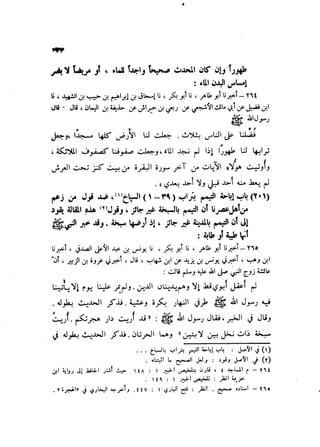 ٢٦٤ - أخبرنا أبو طاهر ، نا أبو بكر ، نا إسماعيل بن إبراهيم بن حبيب بن الشهيد ، نا
محمد بن فضيل عن أبي مالك الأشجعي عن ربعي بن حراش عن حذيفة بن اليمان ، قال : قال
رسول الله ﷺ
فضلنا على الناس بثلاث . جعلت لنا الأرض كلها مسجداً ، وجعل
تربتها لنا طهوراً إذا لم نجد الماء ، وجعلت صفوفنا كصفوف الملائكة ،
وأوتيت هؤلاء الآيات من آخر سورة البقرة من كنز تحت العرش
لم يعط منه أحد قبلي ولا أحد بعدي .
(٢٠١) باب إباحة التيمم بتراب (٣٩ - أ) السباخ(١) ضد قول من زعم
من أهل عصرنا أن التيمم بالسبخة غير جائز ، وقود(٢) هذه المقالة يقود
إلى أن التيمم بالمدينة غير جائز ، إذ أرضها سبخة ، وقد خبر النبي ﷺ
أنها طيبة أو طابة :
٢٦٥ - أخبرنا أبو طاهر ، نا أبو بكر ، نا يونس بن عبد الأعلى الصدفي ، أخبرنا
ابن وهب ، أخبرني يونس بن يزيد عن ابن شهاب ، قال ، وأخبرني عروة بن الزبير ، أن
عائشة زوج النبي صلى الله عليه وسلم قالت :
لم أعقل أبوي إلا وهما يدينان الدين . ولم يمر علينا يوم إلا يأتينا
فيه رسول الله ﷺ طرفي النهار بكرة وعشية . فذكر الحديث بطوله .
وقال في الخبر ، فقال رسول الله ﷺ : « قد أريت دار هجرتكم . أريت
سبخة ذات نخل بين لابتين » وهما الحرتان . فذكر الحديث في
(١) في الأصل : باب إباحة التيمم بتراب السباخ ...
(٢) في الأصل :
٢٦٤ - م المساجد ٤
٢٦٥ - إسناده صحيح .